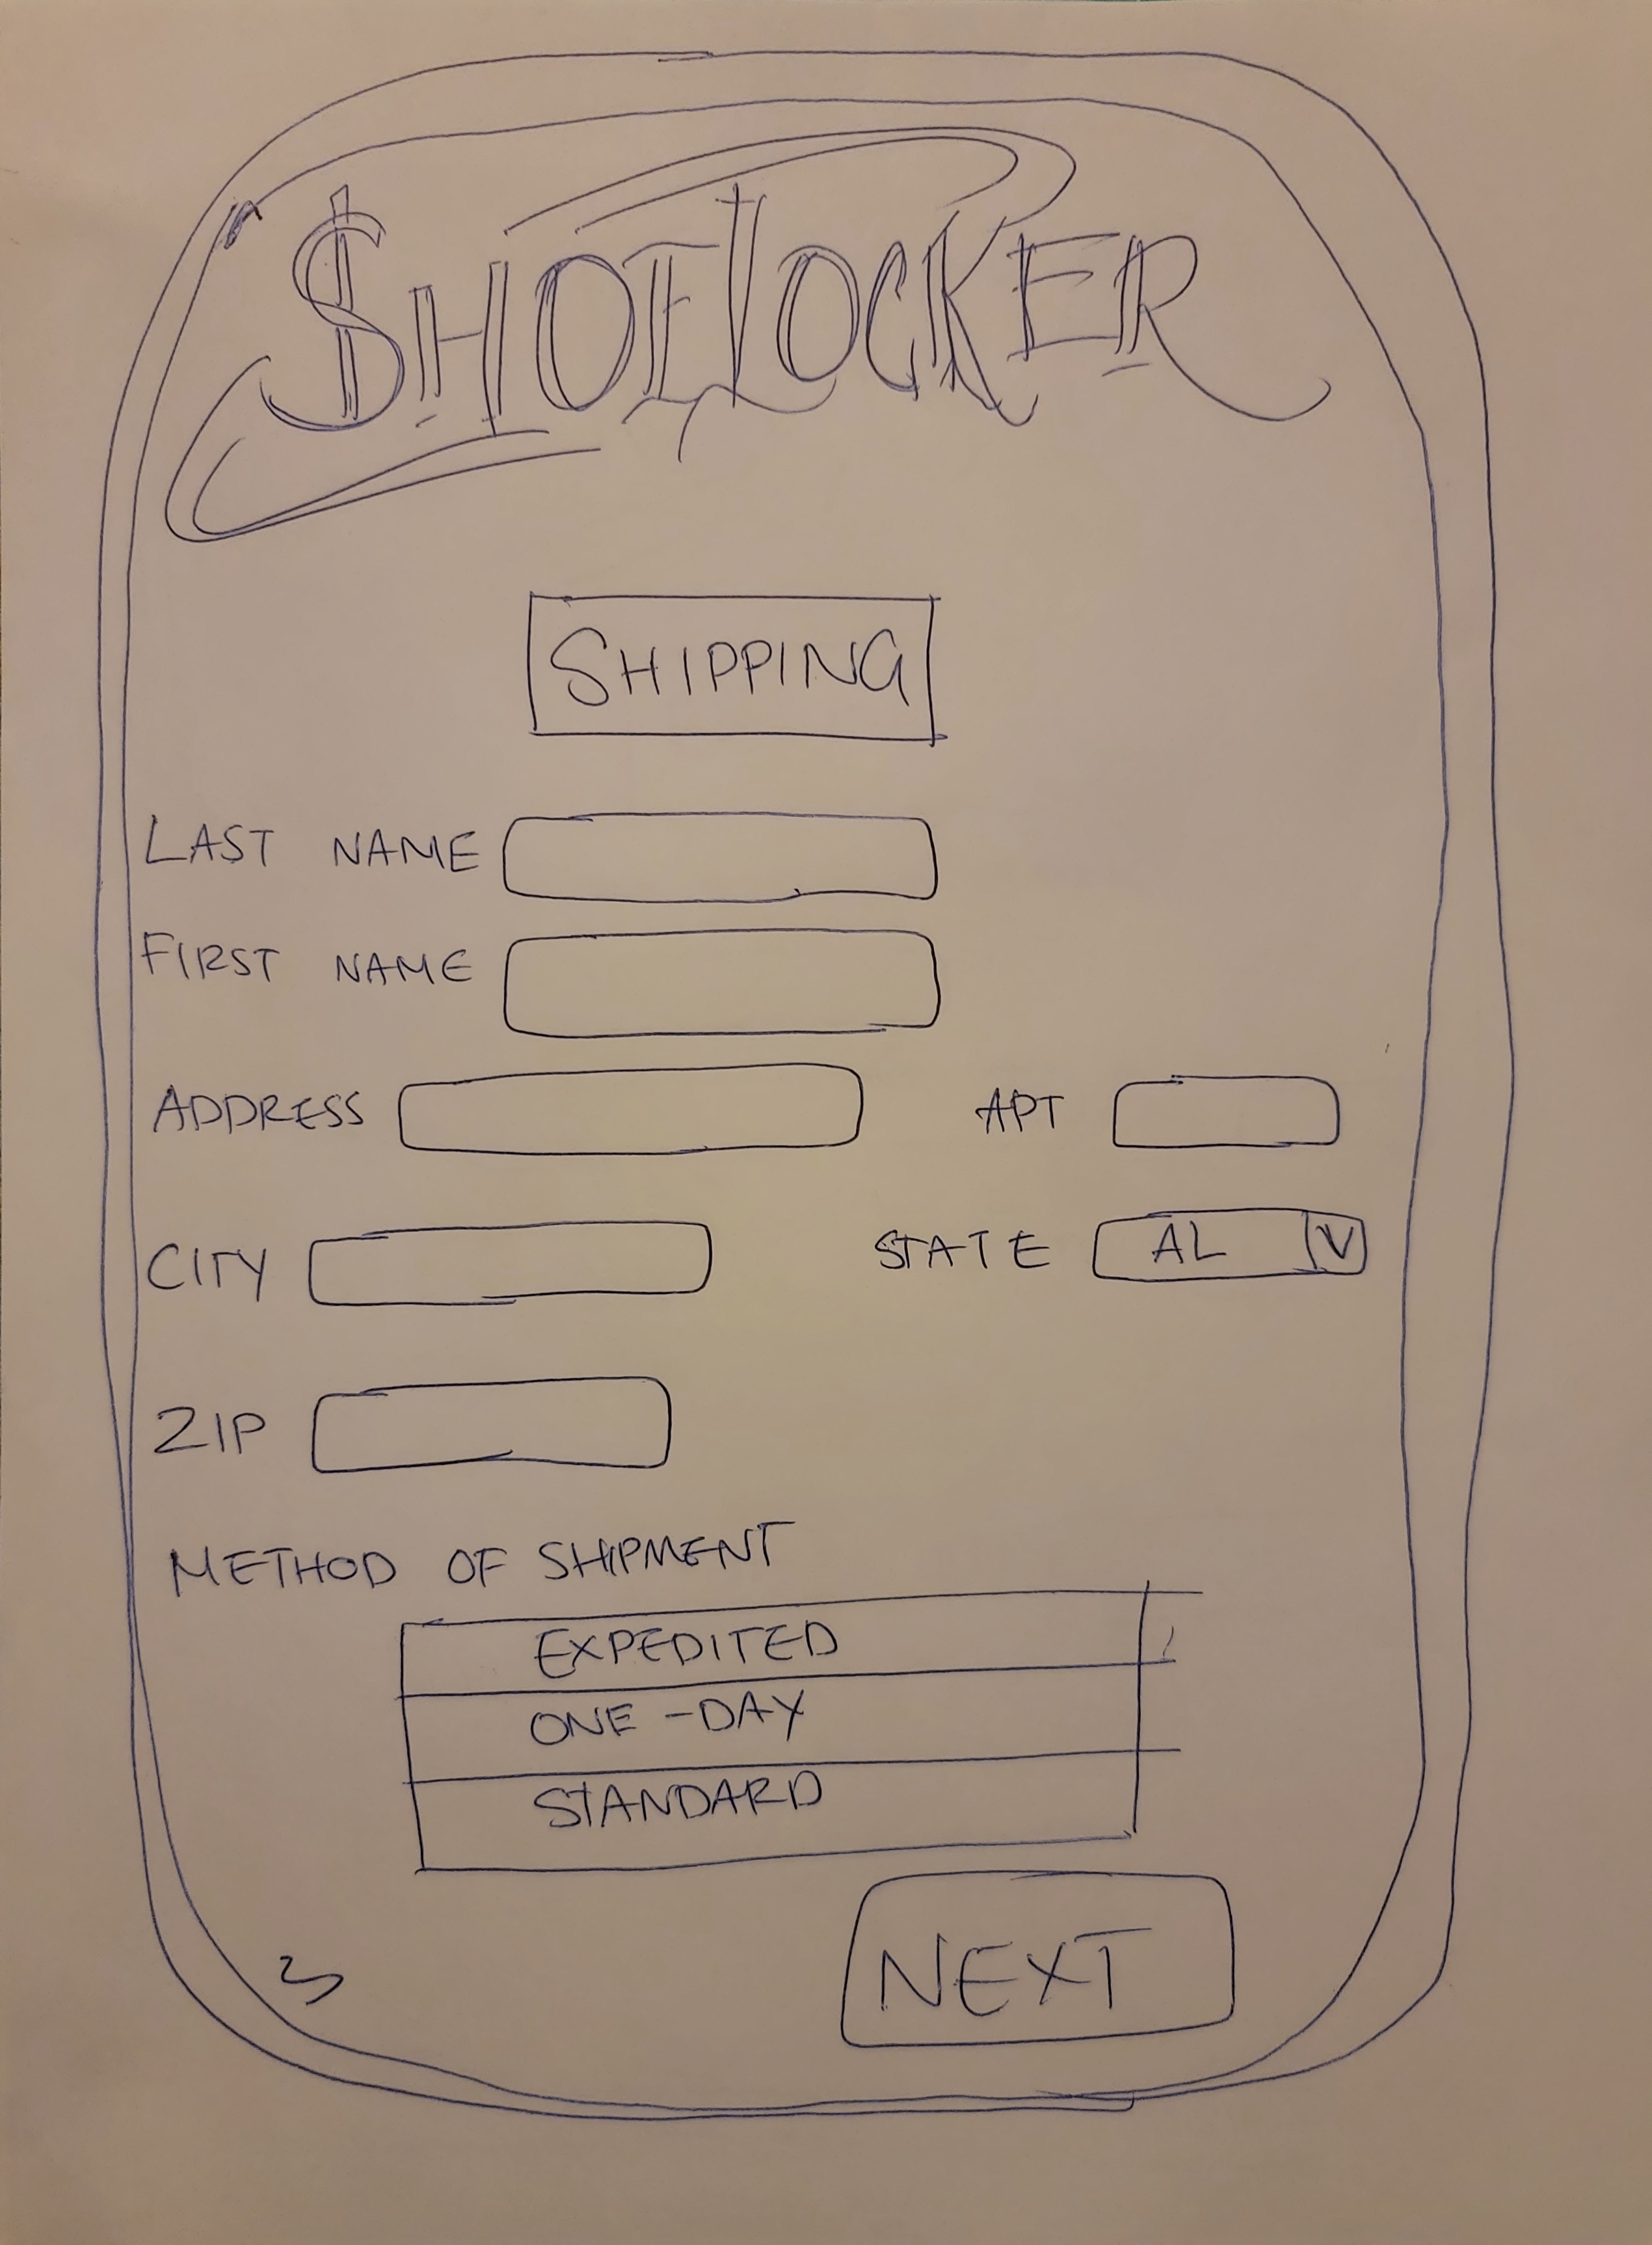 $HOELOCKER
SHIPPING
LAST NAME
FIRST NAME
ADDRESS APT
CITY STATE AL V
ZIP
METHOD OF SHIPMENT
EXPEDITED
ONE-DAY
STANDARD
3 NEXT